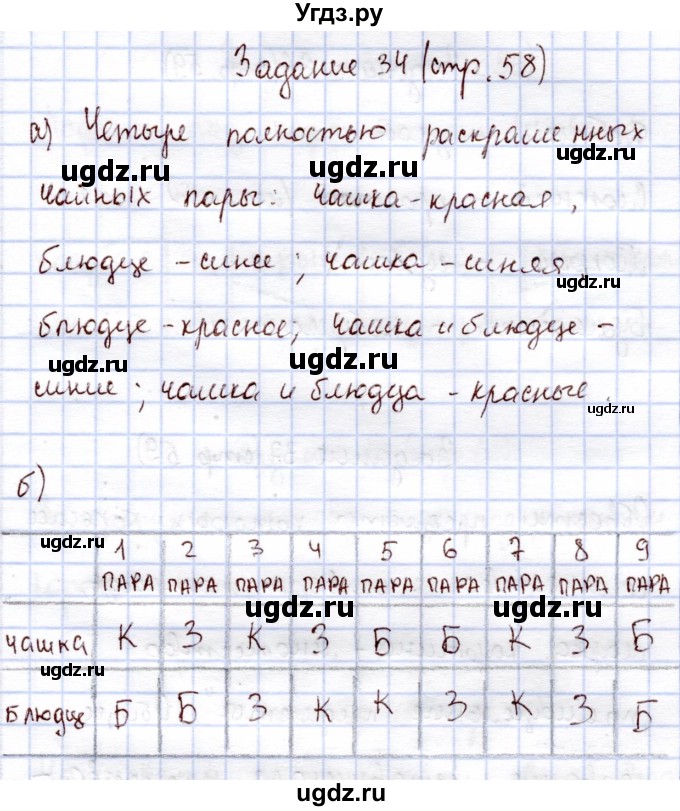 Угдз.ру
Задание 34 (стр. 58)
а) Четыре полностью раскрашенных
ugdz.ru ugdz.ru
чайных пары: чашка - красная,
блюдце - синее; чашка - синяя
ugdz.ru ugdz.ru
блюдце - красное; чашка и блюдце -
ugdz.ru ugdz.ru
синие; чашка и блюдца - красные.
ugdz.ru
б)
ugdz.ru 1 2 3 4 5 6 7 8 9
ПАРА ПАРА ПАРА ПАРА ПАРА ПАРА ПАРА ПАРА ПАРА
ugdz.ru ugdz.ru
чашка К З К З Б Б К З Б
блюдце Б Б З К К З К З Б
ugdz.ru ugdz.ru
ugdz.ru